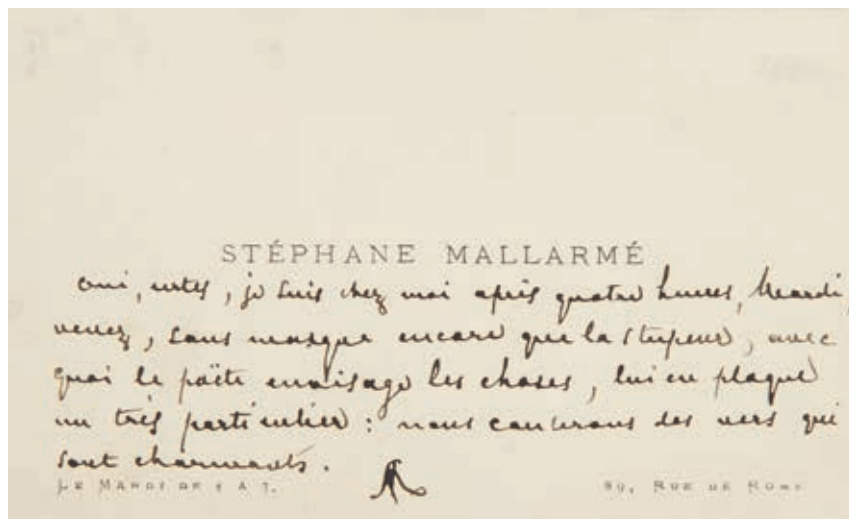 STÉPHANE MALLARMÉ
oui, certes, je suis chez moi après quatre heures, Mardi,
venez, sans masque encore que la stupeur, avec
quoi le poëte envisage les choses, lui en plaque
un très particulier : nous causerons des vers qui
sont charmants.
LE MARDI DE 4 A 7. 89, RUE DE ROME